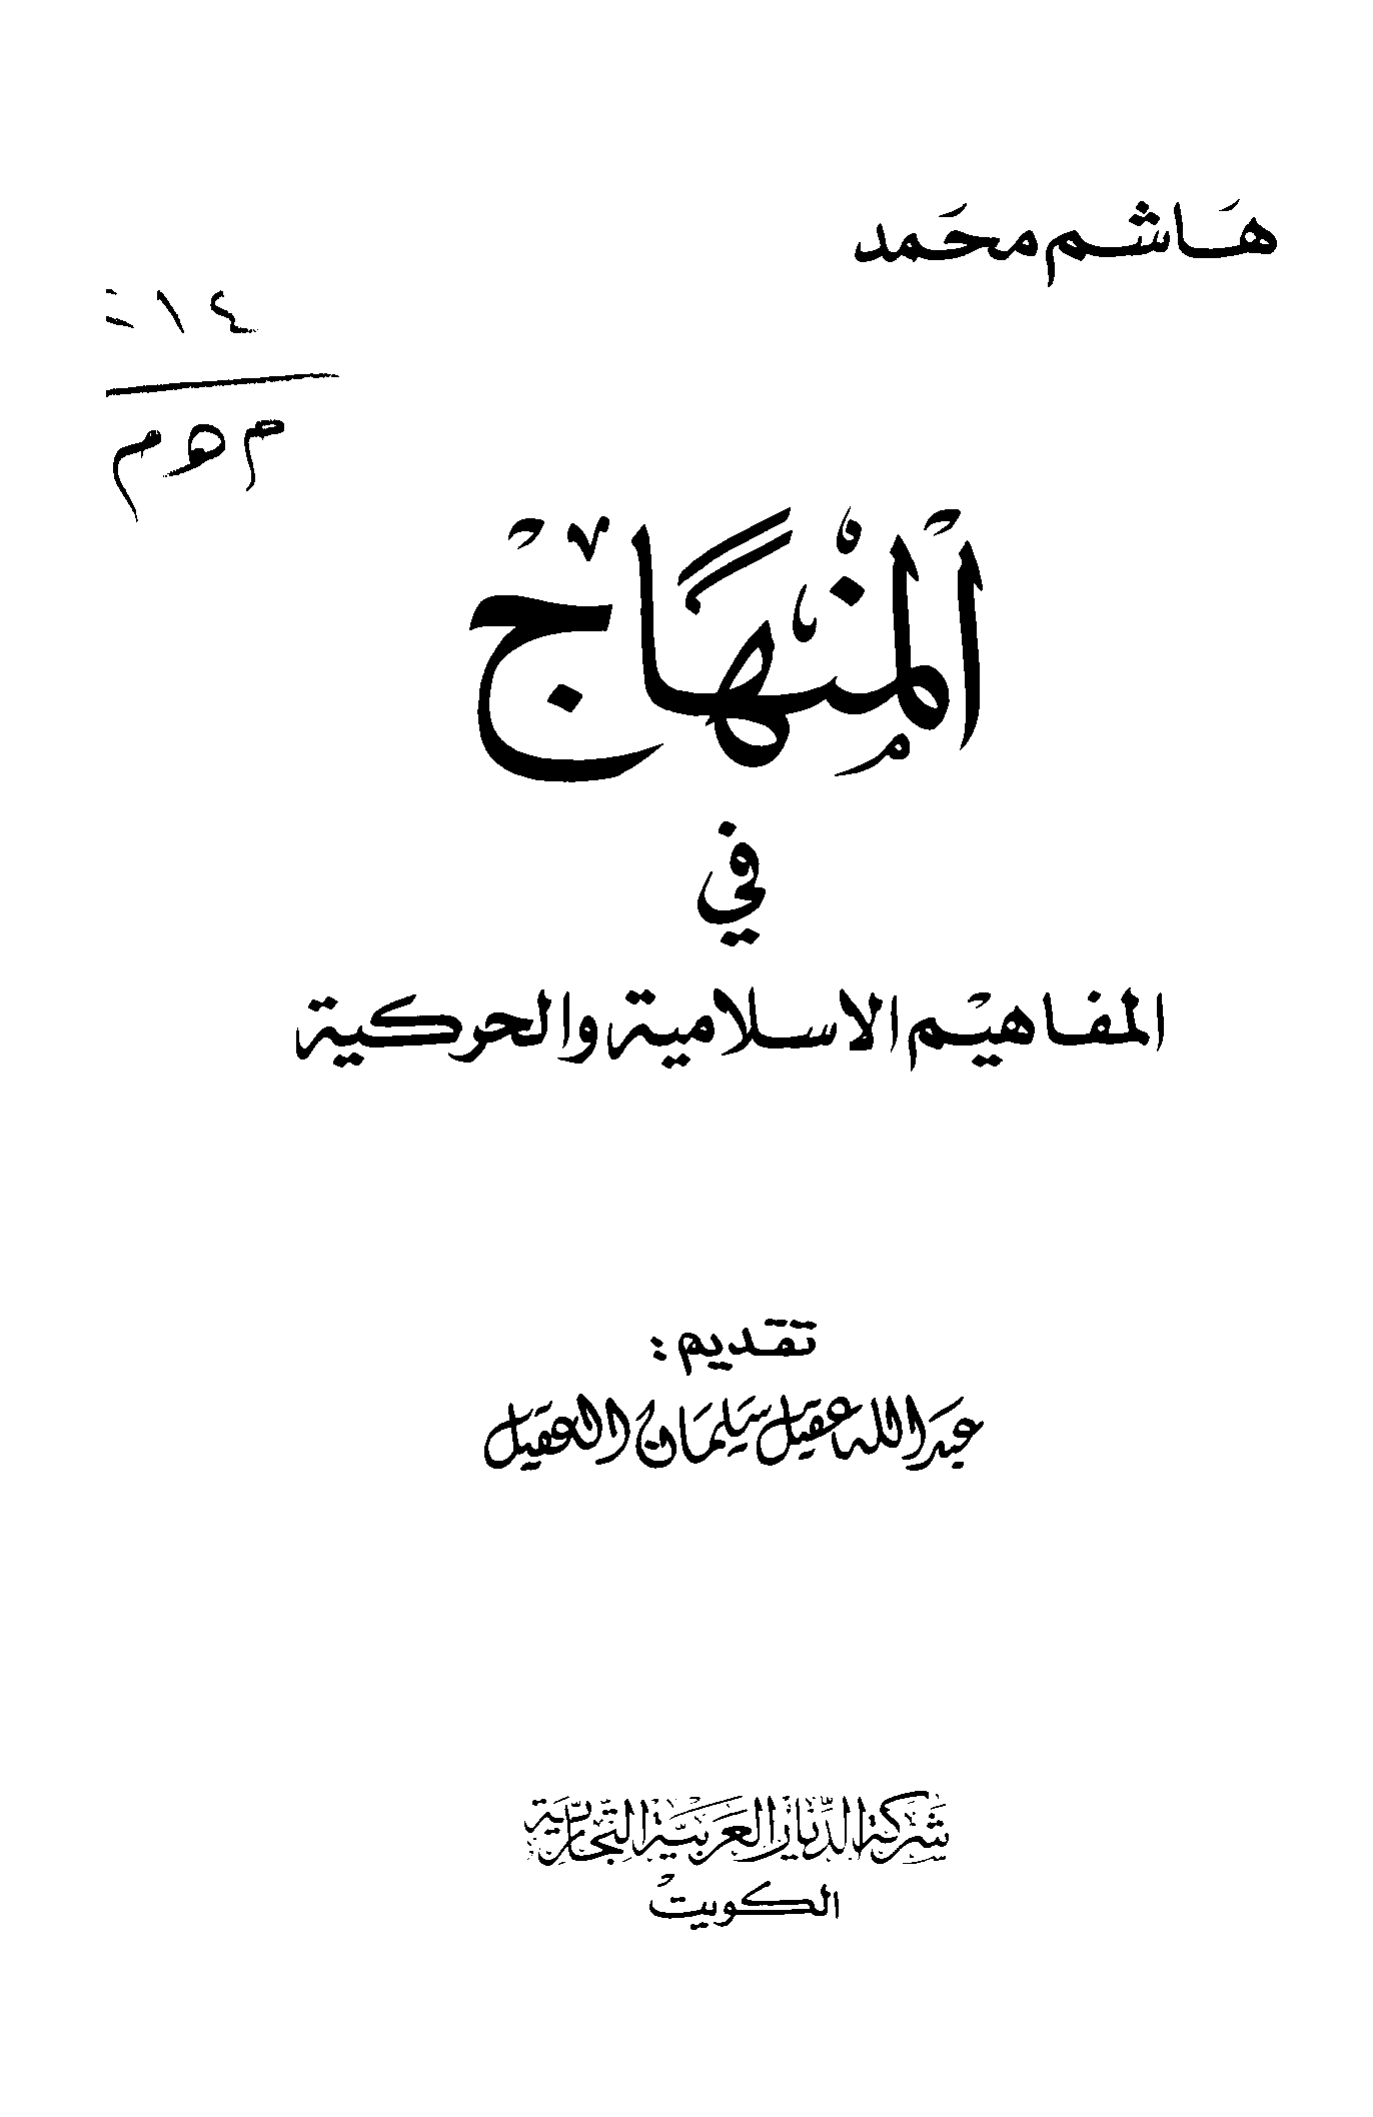 هاشم محمد
٢١٤
م ه م
المنهاج
في
المفاهيم الاسلامية والحركية
تقديم :
عبد الله عقيل سليمان العقيل
شركة الديار العربية التجارية
الكويت